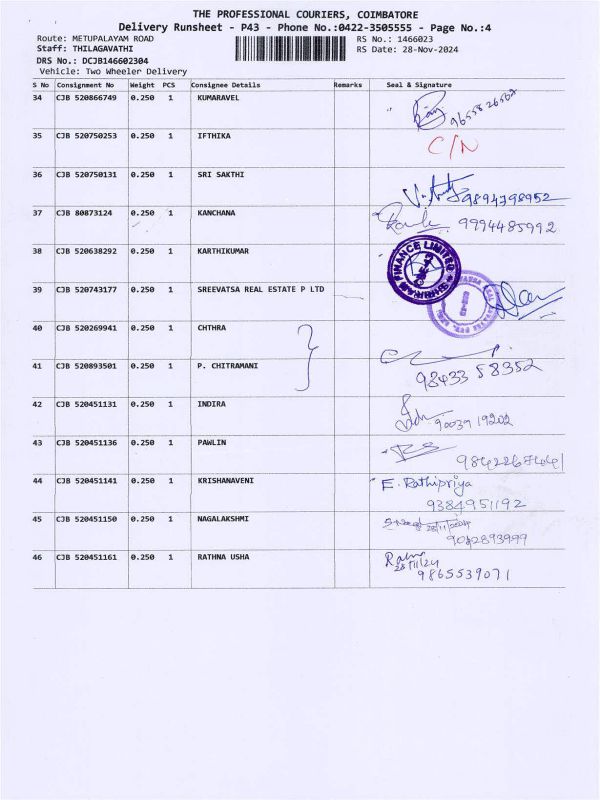 THE PROFESSIONAL COURIERS, COIMBATORE
Delivery Runsheet - P43 - Phone No.:0422-3505555 - Page No.:4
Route: METUPALAYAM ROAD RS No.: 1466023
Staff: THILAGAVATHI RS Date: 28-Nov-2024
DRS No.: DCJB146602304
Vehicle: Two Wheeler Delivery
S No Consignment No Weight PCS Consignee Details Remarks Seal & Signature
34 CJB 520866749 0.250 1 KUMARAVEL
35 CJB 520750253 0.250 1 IFTHIKA C/N
36 CJB 520750131 0.250 1 SRI SAKTHI 9894798952
37 CJB 80873124 0.250 1 KANCHANA 9994485992
38 CJB 520638292 0.250 1 KARTHIKUMAR FINANCE LIMITED
39 CJB 520743177 0.250 1 SREEVATSA REAL ESTATE P LTD
40 CJB 520269941 0.250 1 CHTHRA
41 CJB 520893501 0.250 1 P. CHITRAMANI 98433 58352
42 CJB 520451131 0.250 1 INDIRA 9003919202
43 CJB 520451136 0.250 1 PAWLIN
44 CJB 520451141 0.250 1 KRISHANAVENI E. Rathipriya
9384951192
45 CJB 520451150 0.250 1 NAGALAKSHMI 28/11/2024
9042893999
46 CJB 520451161 0.250 1 RATHNA USHA
28/11/24
9865539071